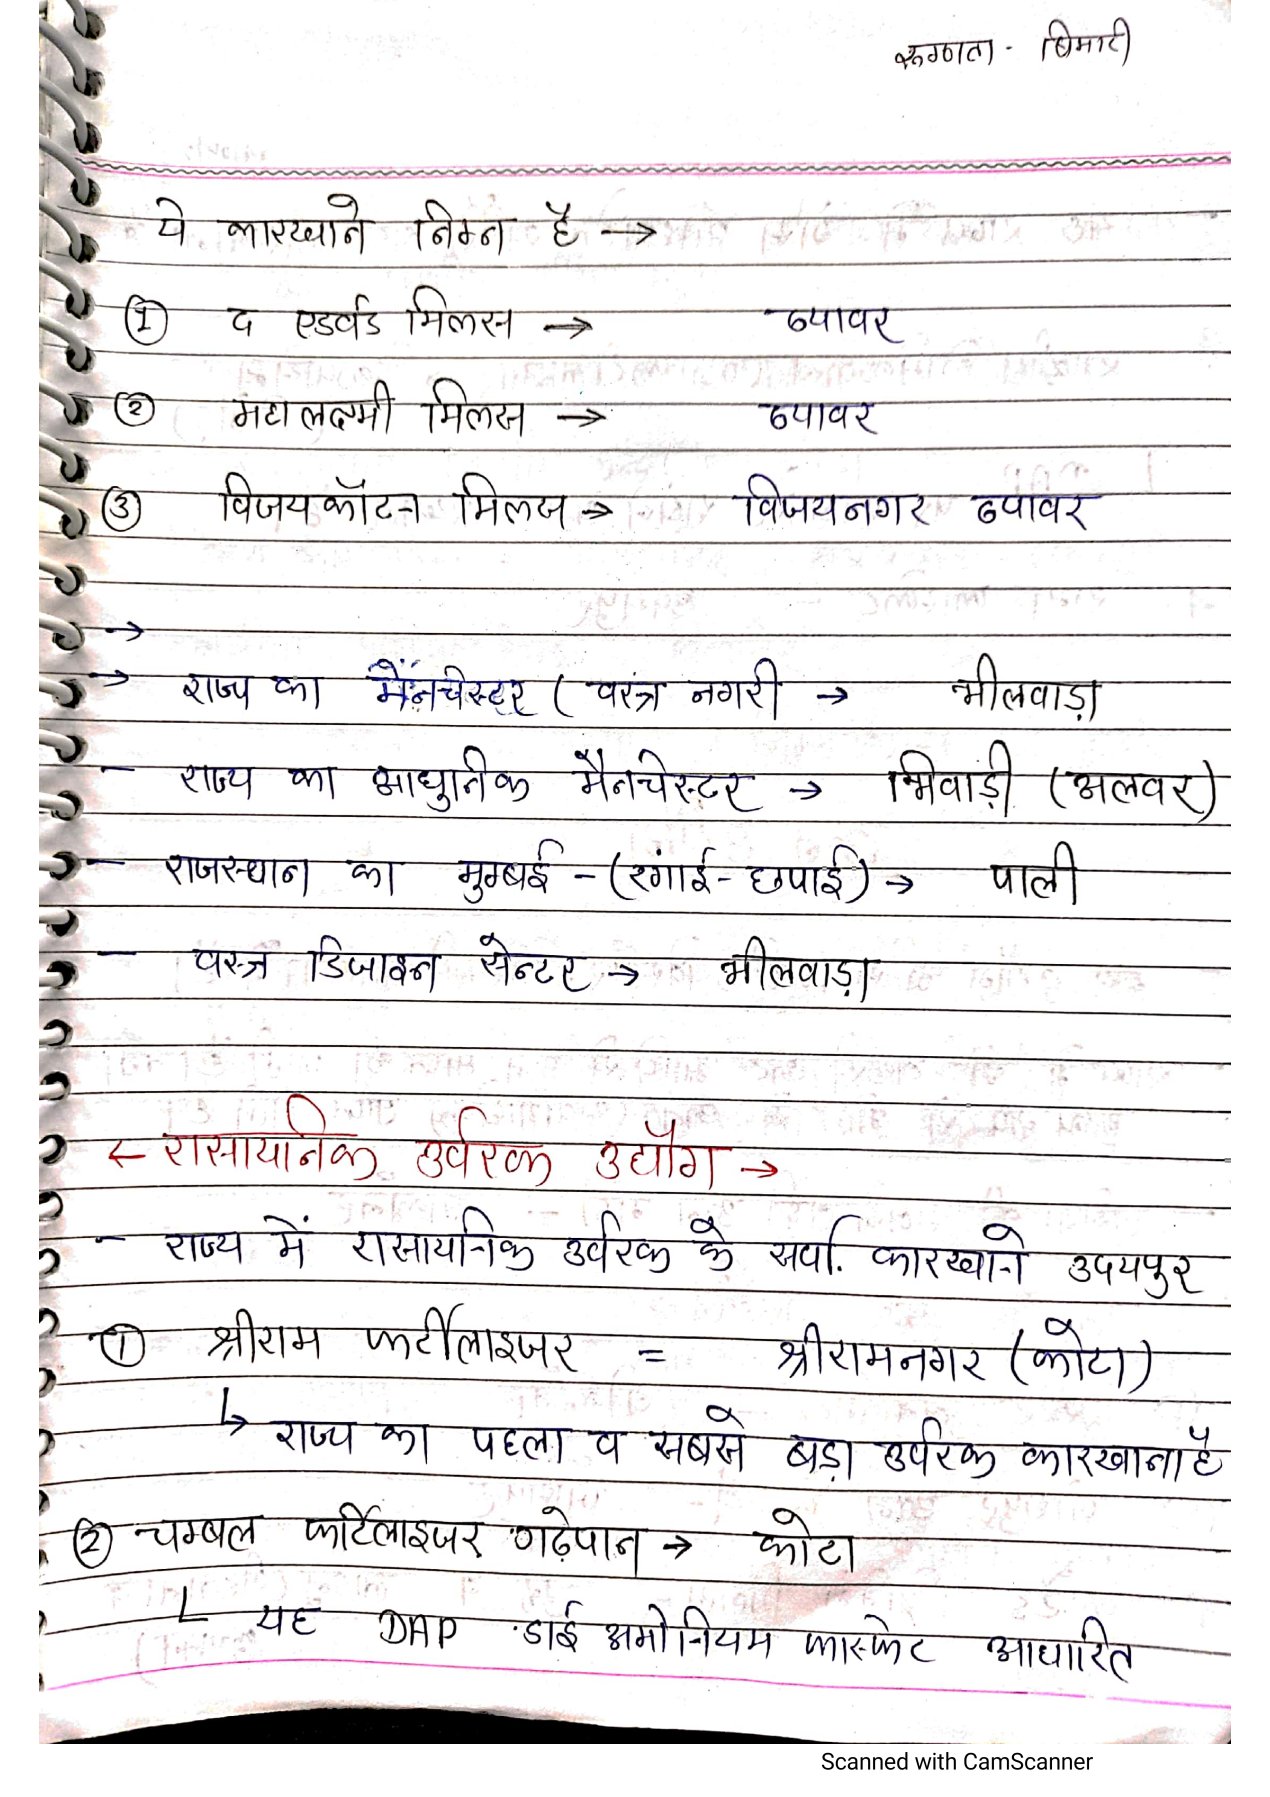 रूग्णता - बिमारी
ये कारखाने निम्न है →
① द एडर्वड मिलस →     ब्यावर
② महालक्ष्मी मिलस →     ब्यावर
③ विजयकॉटन मिलस →     विजयनगर ब्यावर
→
→ राज्य का मैनचेस्टर ( वस्त्र नगरी →     भीलवाड़ा
- राज्य का आधुनिक मैनचेस्टर →     भिवाड़ी (अलवर)
- राजस्थान का मुम्बई - (रंगाई- छपाई) →     पाली
- वस्त्र डिजाइन सेन्टर →     भीलवाड़ा
← रासायनिक उर्वरक उद्यौग →
- राज्य में रासायनिक उर्वरक के सर्वा. कारखाने उदयपुर
① श्रीराम फर्टीलाइजर =     श्रीरामनगर (कोटा)
↳ राज्य का पहला व सबसे बड़ा उर्वरक कारखाना है
② चम्बल फर्टिलाइजर गढ़ेपान →     कोटा
└ यह DAP डाई अमोनियम फास्फेट आधारित
Scanned with CamScanner